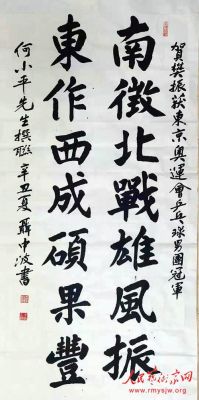 賀樊振東获東京奧運會乒乓球男團冠軍
南徵北戰雄風振
東作西成碩果豐
何小平先生撰聯 辛丑夏 聶中波書
人民艺术家网
www.rmysjw.org